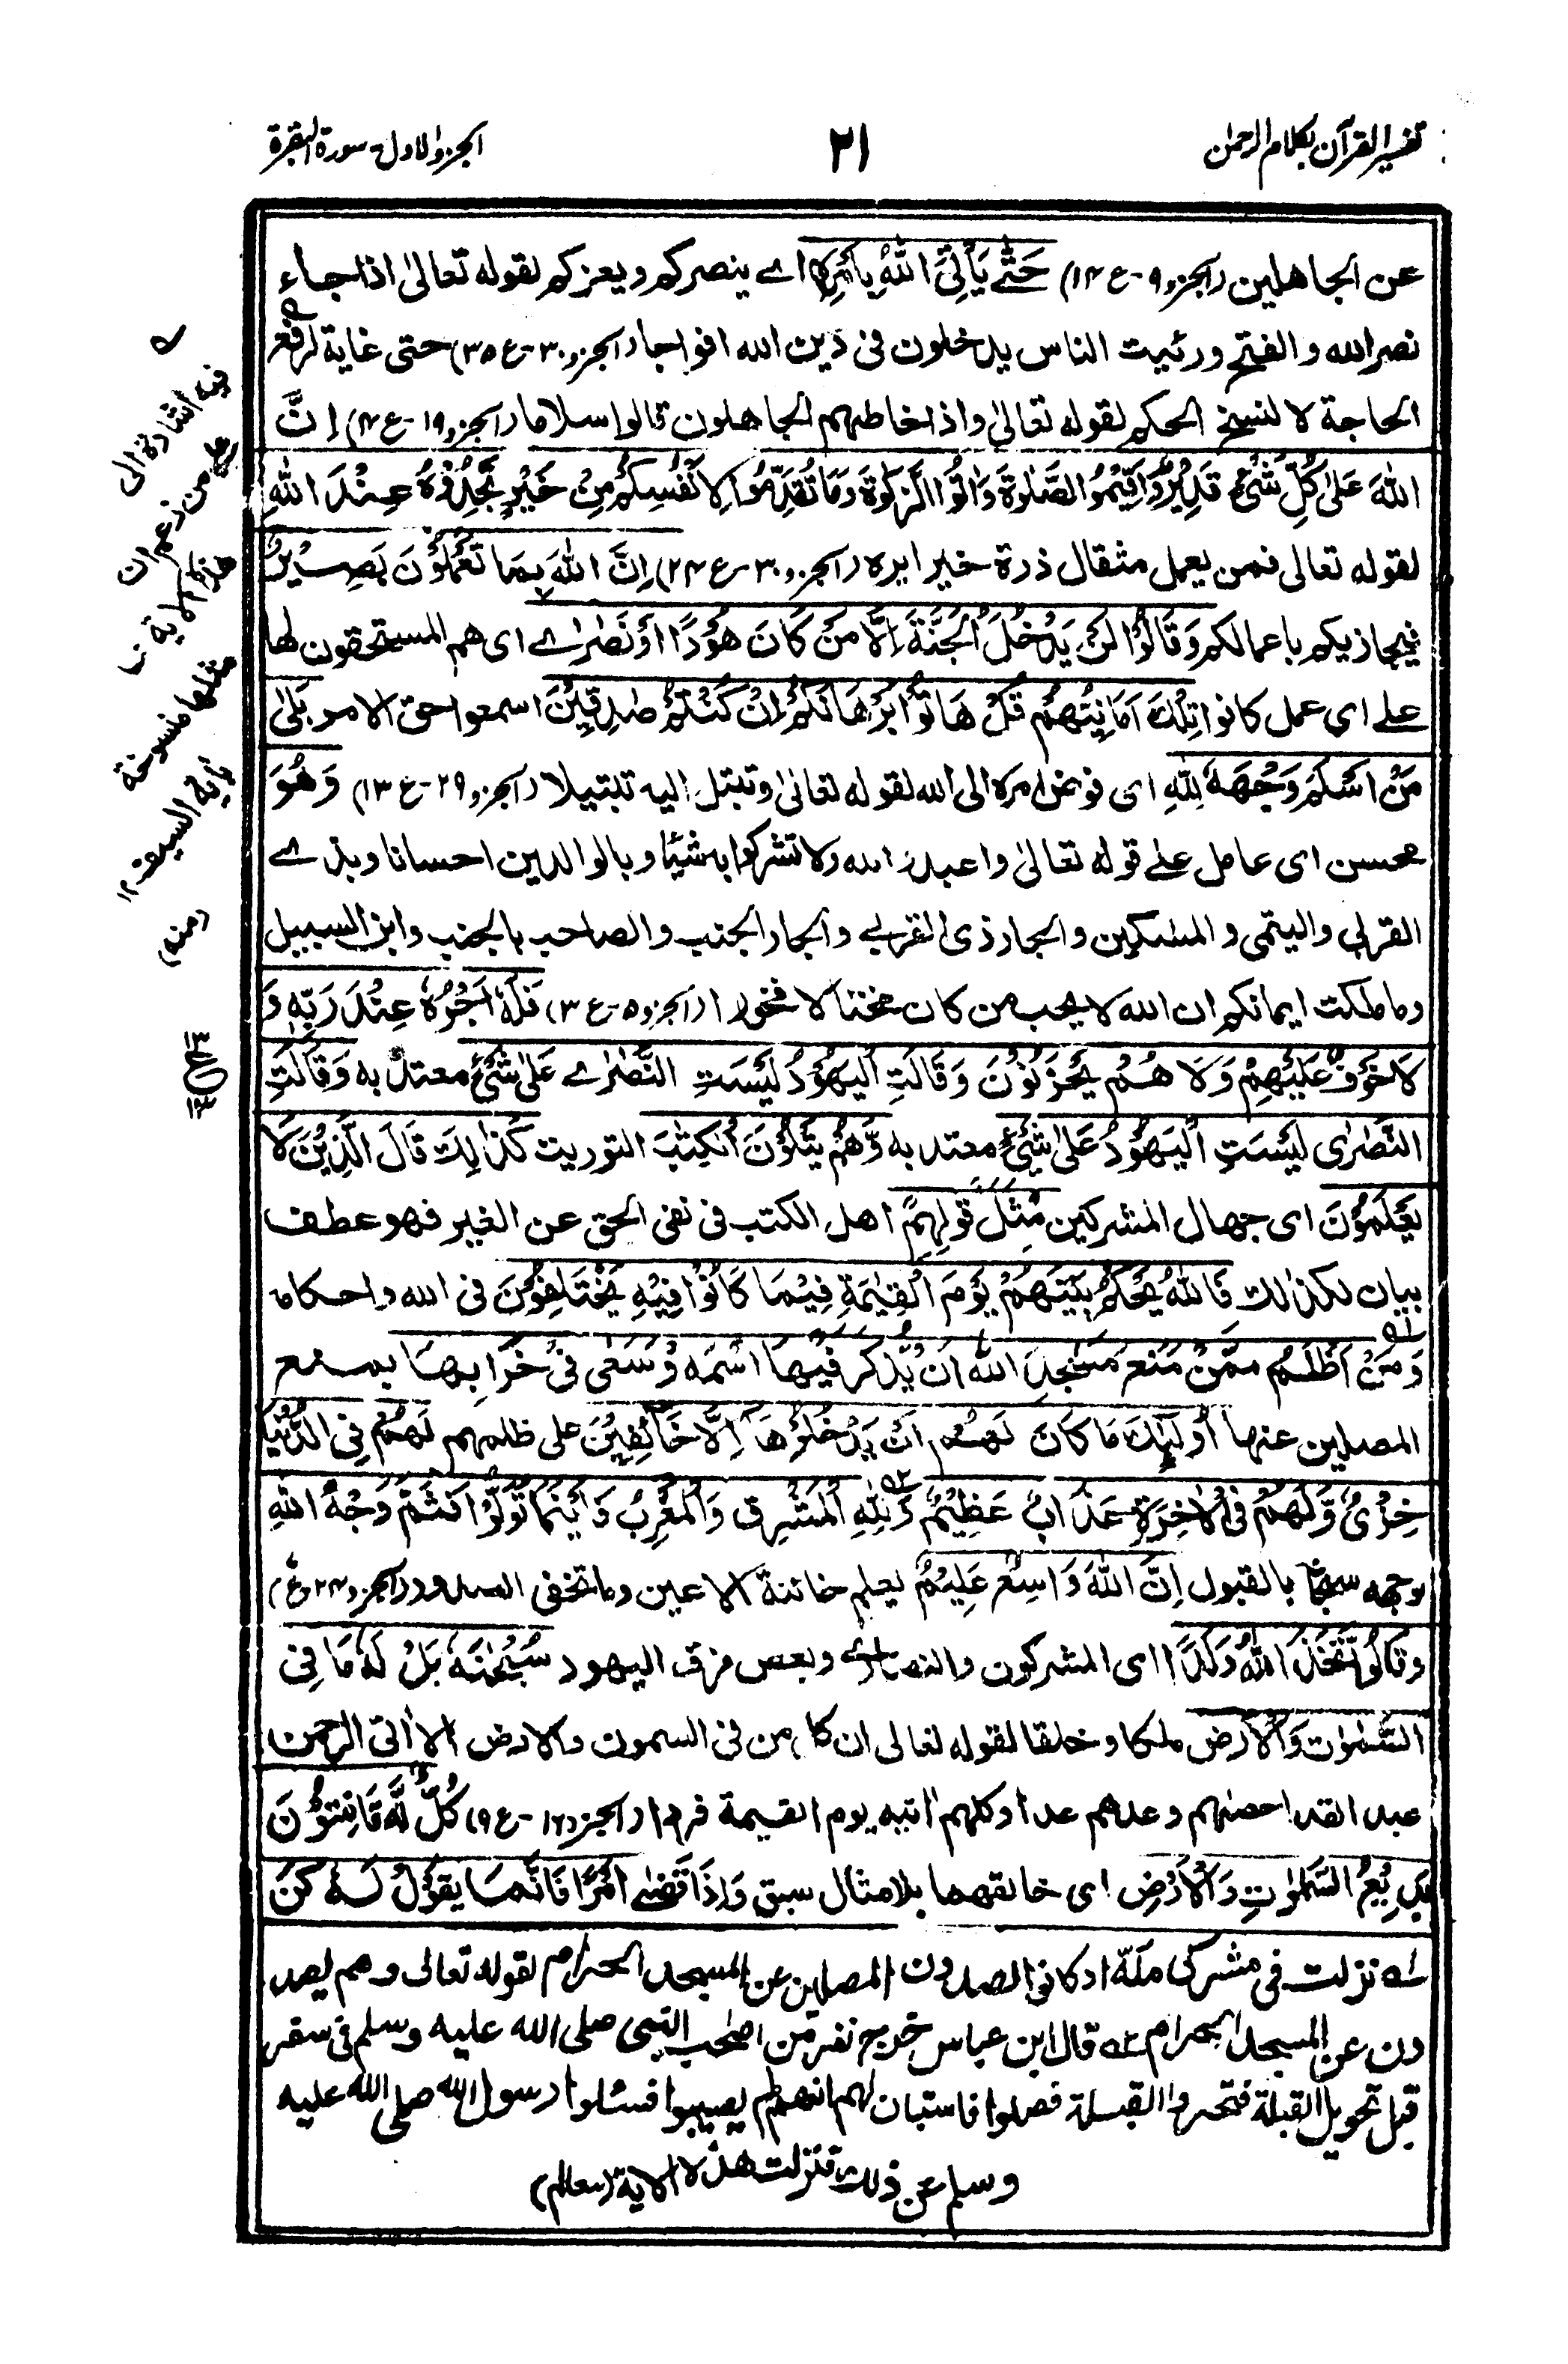 تفسير القرآن بكلام الرحمن
٢١
الجزء الاول - سورة البقرة
عن الجاهلين (الجزء ٩ - ع ١٤) حَتّٰى يَأْتِيَ اللّٰهُ بِاَمْرِهٖ اے ينصركم ويعزكم لقوله تعالىٰ اذا جاء
نصر الله والفتح ورئيت الناس يدخلون فى دين الله افواجا (الجزء ٣٠ - ع ٣٥) حتى غاية لرفع
الحاجة لا لنسخ الحكم لقوله تعالىٰ واذا خاطبهم الجاهلون قالوا سلاما (الجزء ١٩ - ع ٤) اِنَّ
اللّٰهَ عَلٰى كُلِّ شَيْءٍ قَدِيْرٌ وَاَقِيْمُوا الصَّلٰوةَ وَاٰتُوا الزَّكٰوةَ وَمَا تُقَدِّمُوْا لِاَنْفُسِكُمْ مِنْ خَيْرٍ تَجِدُوْهُ عِنْدَ اللّٰهِ
لقوله تعالى فمن يعمل مثقال ذرة خيرا يره (الجزء ٣٠ - ع ٢٤) اِنَّ اللّٰهَ بِمَا تَعْمَلُوْنَ بَصِيْرٌ
فيجازيكم باعمالكم وَقَالُوْا لَنْ يَدْخُلَ الْجَنَّةَ اِلَّا مَنْ كَانَ هُوْدًا اَوْ نَصٰرٰے اى هم المستحقون لها
علے اى عمل كانوا تِلْكَ اَمَانِيُّهُمْ قُلْ هَاتُوْا بُرْهَانَكُمْ اِنْ كُنْتُمْ صٰدِقِيْنَ اسمعوا حق الامر بَلٰى
مَنْ اَسْلَمَ وَجْهَهٗ لِلّٰهِ اى فوض امره الى الله لقوله تعالىٰ وتبتل اليه تبتيلا (الجزء ٢٩ - ع ١٣) وَهُوَ
محسن اى عامل علے قوله تعالىٰ واعبدوا الله ولا تشركوا به شيئا وبالوالدين احسانا وبذے
القربى واليتمى والمسكين والجار ذى القربے والجار الجنب والصاحب بالجنب وابن السبيل
وما ملكت ايمانكم ان الله لا يحب من كان مختالا فخورا (الجزء ٥ - ع ٣) فَلَهٗ اَجْرُهٗ عِنْدَ رَبِّهٖ وَ
لَا خَوْفٌ عَلَيْهِمْ وَلَا هُمْ يَحْزَنُوْنَ وَقَالَتِ الْيَهُوْدُ لَيْسَتِ النَّصٰرٰے عَلٰى شَيْءٍ معتد به وَقَالَتِ
النَّصٰرٰى لَيْسَتِ الْيَهُوْدُ عَلٰى شَيْءٍ معتد به وَّهُمْ يَتْلُوْنَ الْكِتٰبَ التوريت كَذٰلِكَ قَالَ الَّذِيْنَ لَا
يَعْلَمُوْنَ اى جهال المشركين مِثْلَ قَوْلِهِمْ اهل الكتب فى نفى الحق عن الغير فهو عطف
بيان لكذالك فَاللّٰهُ يَحْكُمُ بَيْنَهُمْ يَوْمَ الْقِيٰمَةِ فِيْمَا كَانُوْا فِيْهِ يَخْتَلِفُوْنَ فى الله واحكامه
وَمَنْ اَظْلَمُ مِمَّنْ مَّنَعَ مَسٰجِدَ اللّٰهِ اَنْ يُّذْكَرَ فِيْهَا اسْمُهٗ وَسَعٰى فِيْ خَرَابِهَا بمنع
المصلين عنها اُولٰٓئِكَ مَا كَانَ لَهُمْ اَنْ يَدْخُلُوْهَا اِلَّا خَآئِفِيْنَ على ظلمهم لَهُمْ فِي الدُّنْيَا
خِزْيٌ وَّلَهُمْ فِي الْاٰخِرَةِ عَذَابٌ عَظِيْمٌ وَلِلّٰهِ الْمَشْرِقُ وَالْمَغْرِبُ فَاَيْنَمَا تُوَلُّوْا فَثَمَّ وَجْهُ اللّٰهِ
بالقبول اِنَّ اللّٰهَ وَاسِعٌ عَلِيْمٌ يعلم خائنة الاعين وما تخفى الصدور (الجزء ٢٤ ع)
وَقَالُوا اتَّخَذَ اللّٰهُ وَلَدًا اى المشركون والنصارے وبعض فرق اليهود سُبْحٰنَهٗ بَلْ لَهٗ مَا فِي
السَّمٰوٰتِ وَالْاَرْضِ ملكا وخلقا لقوله تعالى ان كل من فى السموت والارض الا اتى الرحمن
عبدا لقد احصهم وعدهم عدا وكلهم اتيه يوم القيمة فردا (الجزء ١٦ - ع ٩) كُلٌّ لَّهٗ قَانِتُوْنَ
بَدِيْعُ السَّمٰوٰتِ وَالْاَرْضِ اى خالقهما بلا مثال سبق وَاِذَا قَضٰے اَمْرًا فَاِنَّمَا يَقُوْلُ لَهٗ كُنْ
له نزلت فى مشركى مكة اذ كانوا يصدون المصلين عن المسجد الحرام لقوله تعالى وهم يصد
ون عن المسجد الحرام ٢ه قال ابن عباس خرج نفر من اصحب النبى صلى الله عليه وسلم فى سفر
قبل تحويل القبلة فتحروا القبلة فصلوا فاستبان لهم انهم لم يصيبوا فسئلوا رسول الله صلى الله عليه
وسلم عن ذلك فنزلت هذه الاية (معالم)
فيه اشارة الى
رد من زعم ان
هذه الاية و
مثلها منسوخة
باية السيف ١٢
(منه)